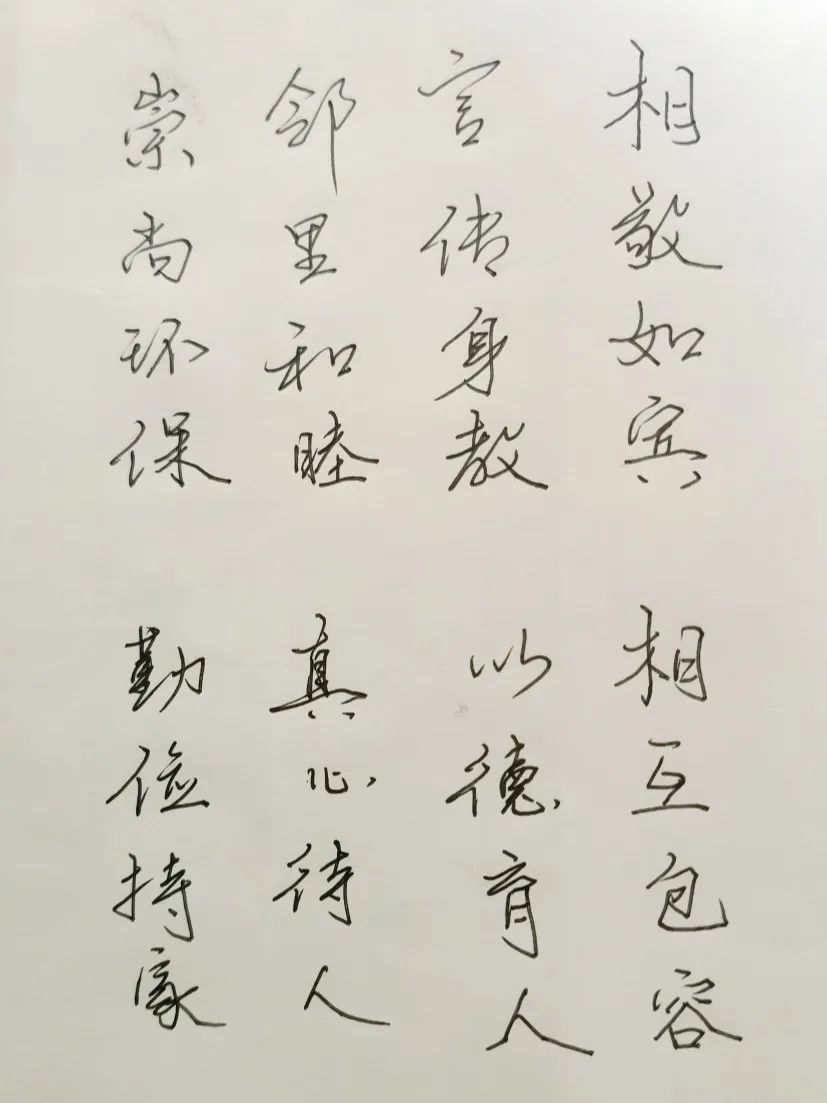 相敬如宾
相互包容
言传身教
以德育人
邻里和睦
真心待人
崇尚环保
勤俭持家